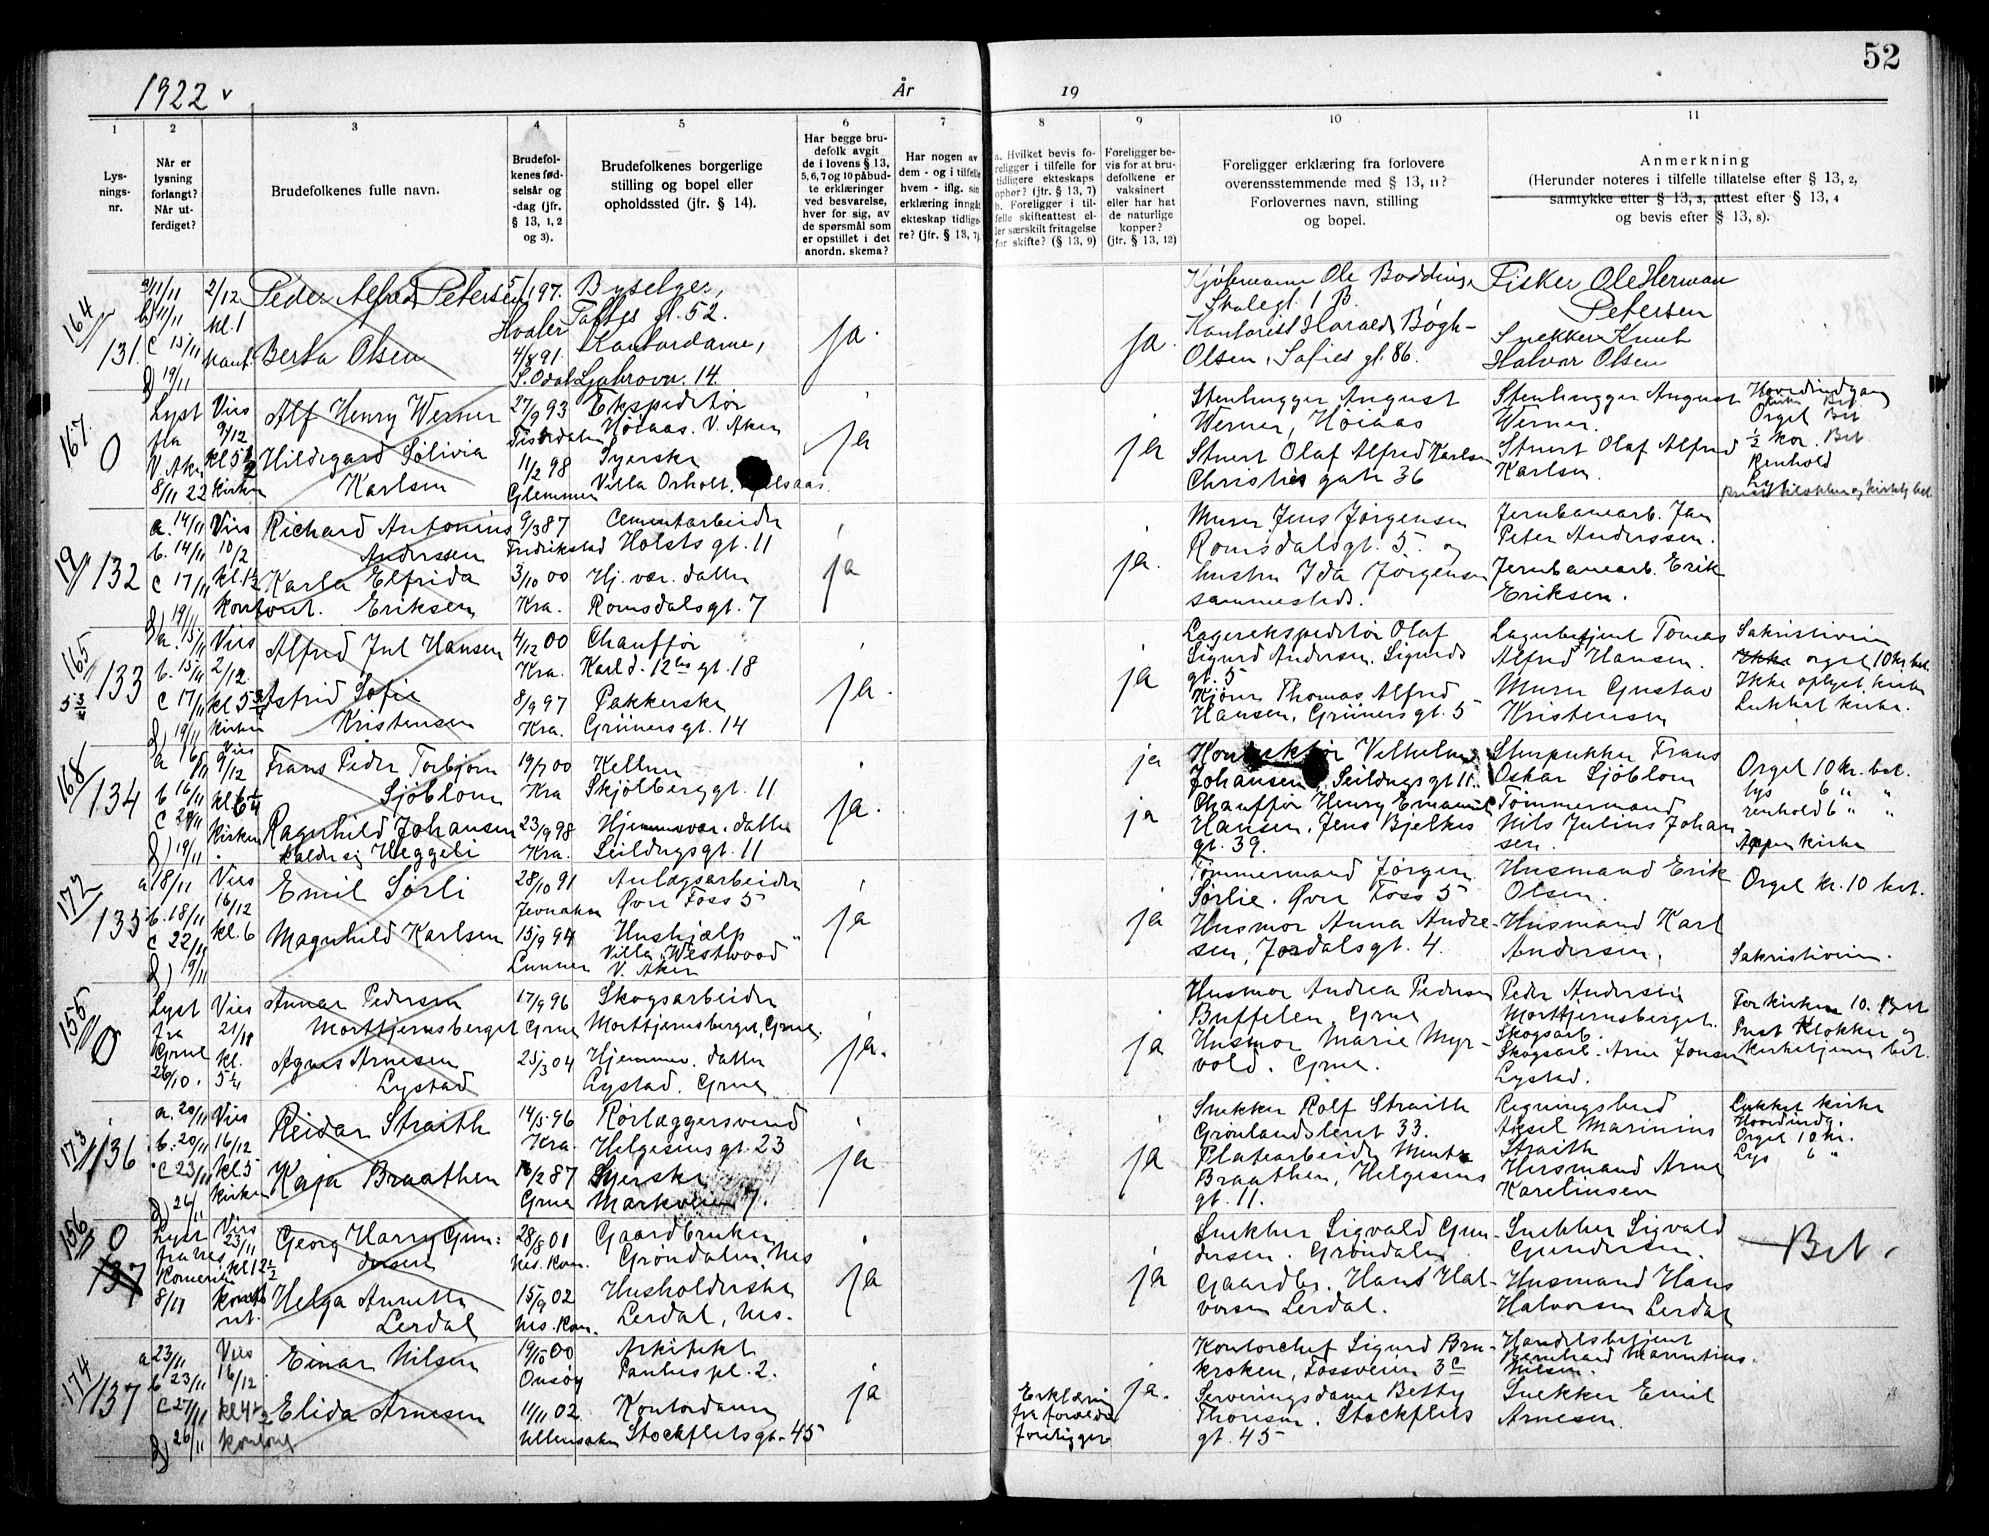 52
1922 v
År
19
1
2
3
4
5
6
7
8
9
10
11
Lys-
nings-
nr.
Når er
lysning
forlangt?
Når ut-
ferdiget?
Brudefolkenes fulle navn.
Brudefol-
kenes fød-
selsår og
-dag (jfr.
§ 13, 1, 2
og 3).
Brudefolkenes borgerlige
stilling og bopel eller
opholdssted (jfr. § 14).
Har begge bru-
defolk avgit
de i lovens § 13,
5, 6, 7 og 10 påbud-
te erklæringer
ved besvarelse,
hver for sig, av
de spørsmål som
er opstillet i det
anordn. skema?
Har nogen av
dem - og i tilfelle
hvem - iflg. sin
erklæring inngåt
ekteskap tidlige-
re? (jfr. § 13, 7).
a. Hvilket bevis fo-
religger i tilfelle for
tidligere ekteskaps
ophør? (jfr. § 13, 7)
b. Foreligger i til-
felle skifteattest el-
ler særskilt fritagelse
for skifte? (§ 13, 9)
Foreligger be-
vis for at bru-
defolkene er
vaksinert
eller har hat
de naturlige
kopper?
(jfr. § 13, 12)
Foreligger erklæring fra forlovere
overensstemmende med § 13, 11?
Forlovernes navn, stilling
og bopel.
Anmerkning
(Herunder noteres i tilfelle tillatelse efter § 13, 2,
samtykke efter § 13, 3, attest efter § 13, 4
og bevis efter § 13, 8).
164
131.
a 11/11
b 11/11
c 15/11
d) 19/11
2/12
kl. 1
Peder Alfred Petersen
Berta Olsen
5/1 97.
Hvaler
4/8 91.
S. Odal
Byselger,
Toftes gt. 52.
Kontordame,
Ljabrovn. 14.
ja.
ja.
Kjøbmann Ole Bodding,
Skolegt. 1 B.
Kontorist Harald Bøgh-
Olsen, Sofies gt. 86.
Fisker Ole Herman
Petersen
Snekker Knut
Halvor Olsen
167
0
Lyst
fra
V. Aker
8/11 22
Viss
9/12
kl 5 1/2
kirken
Alf Henry Werner
Hildegard Sølivia
Karlsen
27/9 93
Tistedalen
11/2 98
Glemmen
Ekspeditør
Høiaas. V. Aker
Syerske
Villa Orholt,
ja
ja
Stenhugger August
Werner, Høiaas
Stuert Olaf Alfred Karlsen
Christies gate 36
Stenhugger August
Werner.
Stuert Olaf Alfred
Karlsen
Hovedindgang
Orgel Bet
1/2 kor. Bet
Renhold
Lys
19/132
a. 14/11
b. 14/11
c 17/11
d) 19/11
Viss
10/2
kl. 1 1/2
kontort.
Richard Antonius
Anderssen
Karla Elfrida
Eriksen
9/3 87
Fredrikstad
3/10 00
Kra.
Cementarbeider
Holsts gt. 11
Hj. vær. datter
Romsdalsgt. 7
ja
ja.
Murer Jens Jørgensen
Romsdalsgt. 5. og
hustru Ida Jørgensen
sammesteds.
Jernbanearb. Jan
Peter Anderssen.
Jernbanearb. Erik
Eriksen.
165
133
5 3/4
a. 15/11
b. 15/11
c 17/11
d) 19/11
Viss
2/12
kl 5 3/4
kirken
Alfred Jul Hansen
Astrid Sofie
Kristensen
4/12 00
Kra.
8/9 97
Kra.
Chauffør
Karl d. 12tes gt. 18
Pakkerske
Grünersgt. 14
ja.
ja
Lagerekspeditør Olaf
Sigurd Andersen, Sigurds
gt. 5
Kjører Thomas Alfred
Hansen, Grünersgt. 5
Lagerbetjent Tomas
Alfred Hansen.
Murer Gustav
Kristensen
Sakristiveien
Ikke orgel 10 kr bet.
Ikke oplyst kirke
Lukket kirke.
168
134
a 16/11
b 16/11
c 20/11
d) 19/11
Viss
9/12
kl 6 1/4
kirken
Frans Peder Torbjørn
Sjöblom
Ragnhild Johansen
kalder sig Heggeli
19/7 00
Kra
23/9 98
Kra.
Kellner
Skjølberggt. 11
Hjemmevær. datter
Seildugsgt. 11
ja.
ja
ja
Konduktør Vilhelm
Johansen, Seildugsgt 11.
Chauffør Henry Emanuel
Hansen, Jens Bjelkes
gt. 39.
Stenpukker Frans
Oskar Sjöblom
Tømmermand
Nils Julius Johan
sen.
Orgel 10 kr. bet.
lys 6 " "
renhold 6 " "
Aapen kirke
172
135
a 18/11
b. 18/11
c 22/11
d) 19/11
Viss
16/12
kl. 6
Emil Sørli
Magnhild Karlsen
28/10 91
Jevnaker
15/9 94
Lunner
Anlægsarbeider
Øvre Foss 5
Hushjælp
Villa "Westwood"
V. Aker
ja
ja
Tømmermand Jørgen
Sørlie. Øvre Foss 5
Husmor Anna Andre-
sen, Jordalsgt. 4.
Husmand Erik
Olsen.
Husmand Karl
Andersen.
Orgel kr. 10 bet.
Sakristiveien.
155
0
Lyst
fra
Grue
26/10.
Viss
kl.
5 1/4
Annar Pedersen
Morttjernsberget
Agnes Arnesen
Lystad
17/9 96
Grue
25/3 04
Skogsarbeider
Morttjernsberget, Grue.
Hjemmev. datter
Lystad, Grue
ja.
ja
Husmor Andrea Pedersen
Buffelen, Grue
Husmor Marie Myr-
vold. Grue.
Peder Andersen
Morttjernsberget.
Skogsarb.
Skogsarb. Arne Jonsen
Lystad.
For kirken 10. Bet
Prest Klokker og
kirketjener bet.
173/136
a. 20/11
b. 20/11
c 23/11
d) 26/11
Viss
16/12
kl 5
kirken
Reidar Straith
Kaja Braathen
14/5 96
Kra.
16/2 87
Grue
Rørlæggersvend
Helgesens gt. 23
Syerske
Markveien 7.
ja
ja
Snekker Rolf Straith
Grønlandsleret 33.
Platearbeider
Braathen, Helgesens
gt. 11.
Regningsbud
Aksel Marinius
Straith
Husmand Arne
Karelinsen
Lukket kirke
Hovedindg.
Orgel 10 kr.
Lys 6 "
156
0
137
Lyst
fra Nes
Romerike
8/11
Viss
23/11
kl 12 1/2
Georg Harry Gun-
dersen
Helga Annette
Lerdal
28/8 01
Nes. Rom.
15/9 02
Nes. Rom.
Gaardbruker
Grøndalen, Nes
Husholderske
Lerdal, Nes.
ja
ja
Snekker Sigvald Gun-
dersen. Grøndalen
Gaardbr. Hans Hal-
vorsen Lerdal.
Snekker Sigvald
Gundersen.
Husmand Hans
Halvorsen Lerdal
Bet.
174/137
a 23/11
b 23/11
c 27/11
d) 26/11
Viss
16/12
kl 4 1/2
kontoret
Einar Nilsen
Elida Arnesen
19/10 00
Onsøy
11/11 02
Ullensaker
Arkitekt
Paulus pl. 2.
Kontordame
Stockfletsgt. 45
ja
Erklæring
fra forældre
foreligger
ja.
Kontorchef Sigurd Bru-
kroken, Fossveien 3c
Serveringsdame Betty
Thoresen. Stockflets
gt. 45
Handelsbetjent
Bernhard Mauritius
Nilsen.
Snekker Emil
Arnesen.